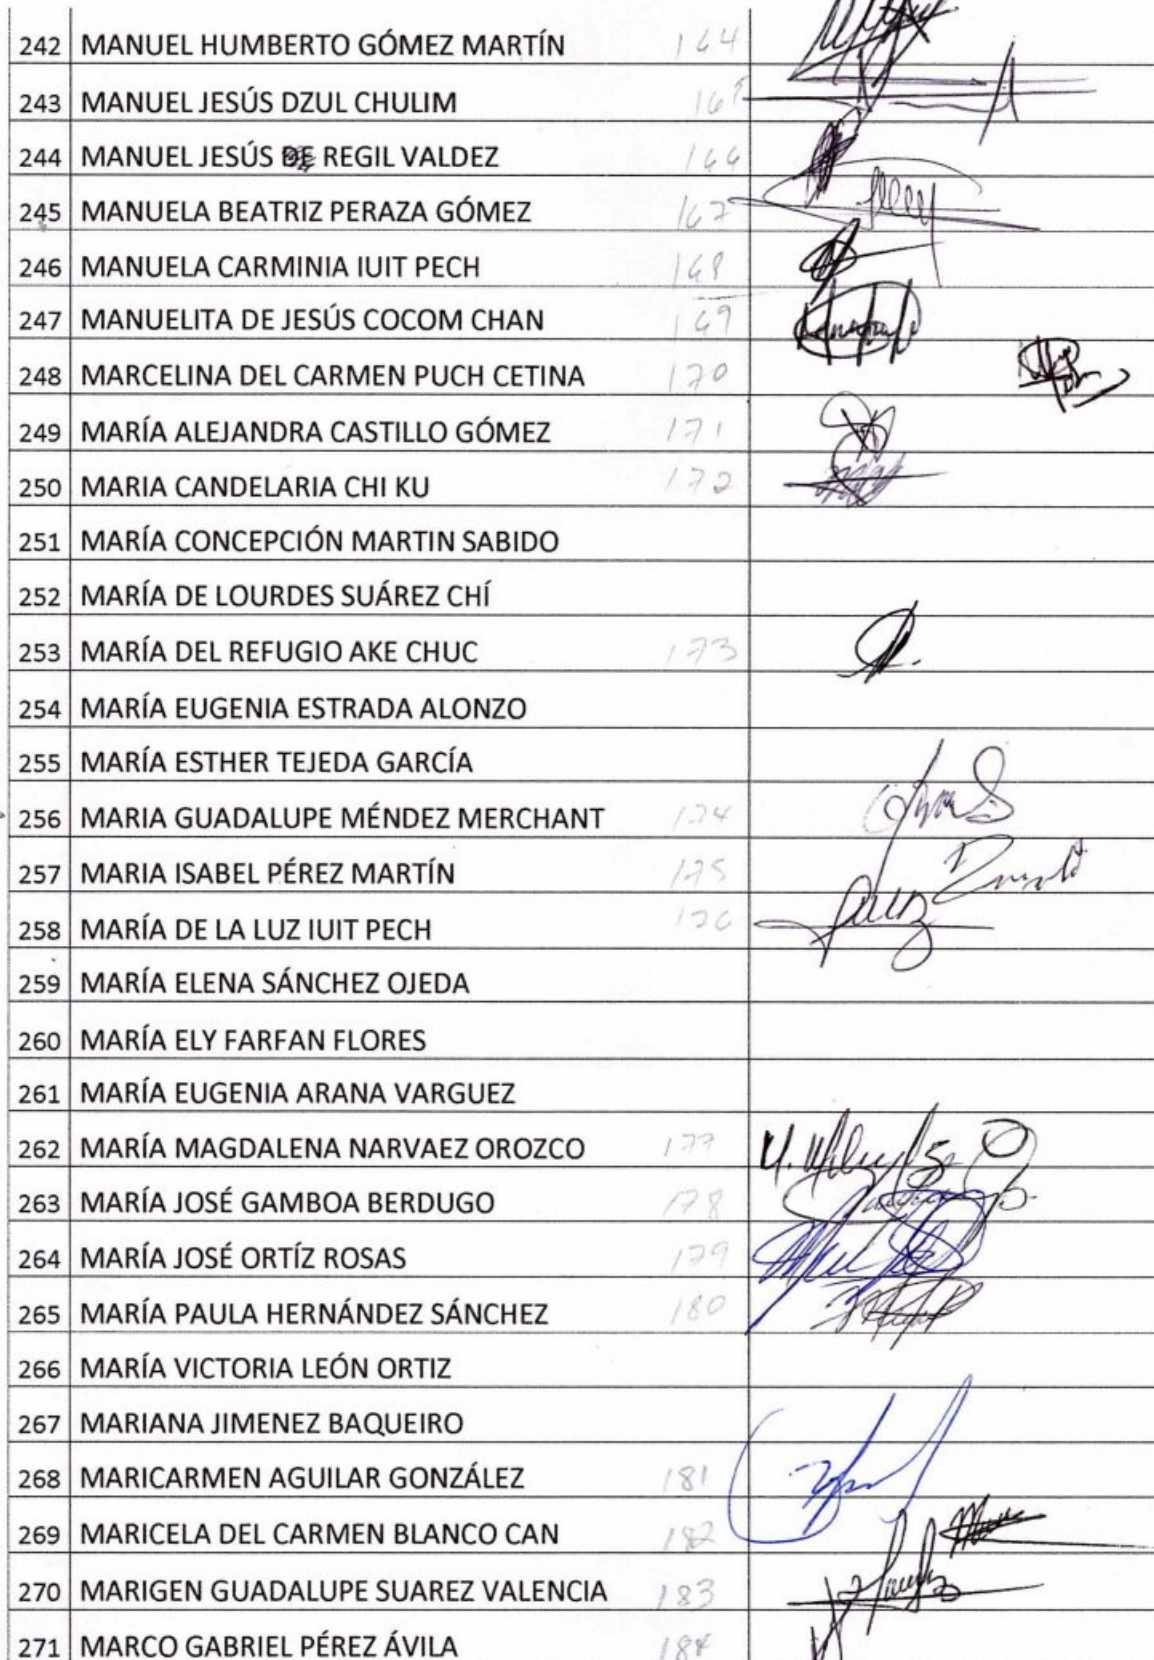 242 MANUEL HUMBERTO GÓMEZ MARTÍN 164
243 MANUEL JESÚS DZUL CHULIM 165
244 MANUEL JESÚS DE REGIL VALDEZ 166
245 MANUELA BEATRIZ PERAZA GÓMEZ 167
246 MANUELA CARMINIA IUIT PECH 168
247 MANUELITA DE JESÚS COCOM CHAN 169
248 MARCELINA DEL CARMEN PUCH CETINA 170
249 MARÍA ALEJANDRA CASTILLO GÓMEZ 171
250 MARIA CANDELARIA CHI KU 172
251 MARÍA CONCEPCIÓN MARTIN SABIDO
252 MARÍA DE LOURDES SUÁREZ CHÍ
253 MARÍA DEL REFUGIO AKE CHUC 173
254 MARÍA EUGENIA ESTRADA ALONZO
255 MARÍA ESTHER TEJEDA GARCÍA
256 MARIA GUADALUPE MÉNDEZ MERCHANT 174
257 MARIA ISABEL PÉREZ MARTÍN 175
258 MARÍA DE LA LUZ IUIT PECH 176
259 MARÍA ELENA SÁNCHEZ OJEDA
260 MARÍA ELY FARFAN FLORES
261 MARÍA EUGENIA ARANA VARGUEZ
262 MARÍA MAGDALENA NARVAEZ OROZCO 177
263 MARÍA JOSÉ GAMBOA BERDUGO 178
264 MARÍA JOSÉ ORTÍZ ROSAS 179
265 MARÍA PAULA HERNÁNDEZ SÁNCHEZ 180
266 MARÍA VICTORIA LEÓN ORTIZ
267 MARIANA JIMENEZ BAQUEIRO
268 MARICARMEN AGUILAR GONZÁLEZ 181
269 MARICELA DEL CARMEN BLANCO CAN 182
270 MARIGEN GUADALUPE SUAREZ VALENCIA 183
271 MARCO GABRIEL PÉREZ ÁVILA 184